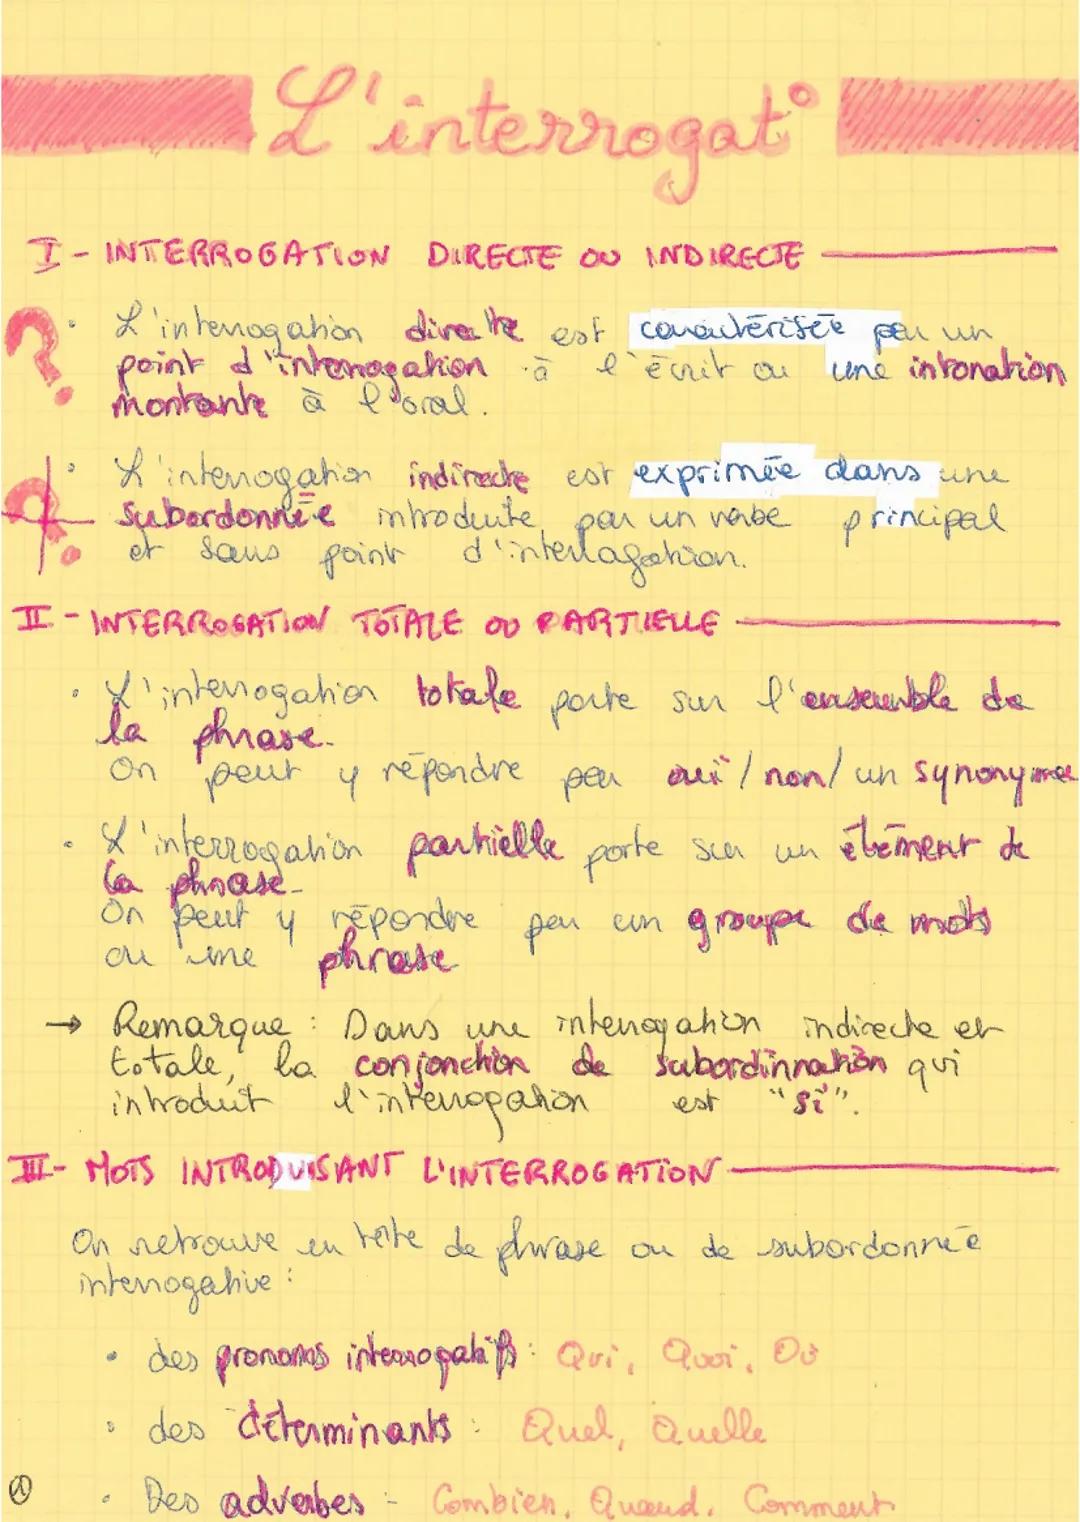 L'interrogat°
I - INTERROGATION DIRECTE OU INDIRECTE
? • L'interrogation directe est caractérisée par un
point d'interrogation à l'écrit ou une intonation
montante à l'oral.
? • L'interrogation indirecte est exprimée dans une
subordonnée introduite par un verbe principal
et sans point d'interrogation.
II - INTERROGATION TOTALE OU PARTIELLE
• L'interrogation totale porte sur l'ensemble de
la phrase.
On peut y répondre par oui / non / un synonyme
• L'interrogation partielle porte sur un élément de
la phrase.
On peut y répondre par un groupe de mots
ou une phrase
→ Remarque : Dans une interrogation indirecte et
totale, la conjonction de subordinnation qui
introduit l'interrogation est "si".
III - MOTS INTRODUISANT L'INTERROGATION
On retrouve en tête de phrase ou de subordonnée
interrogative :
• des pronoms interrogatifs : Qui, Quoi, Où
• des déterminants : Quel, Quelle
① • Des adverbes - Combien, Quand, Comment